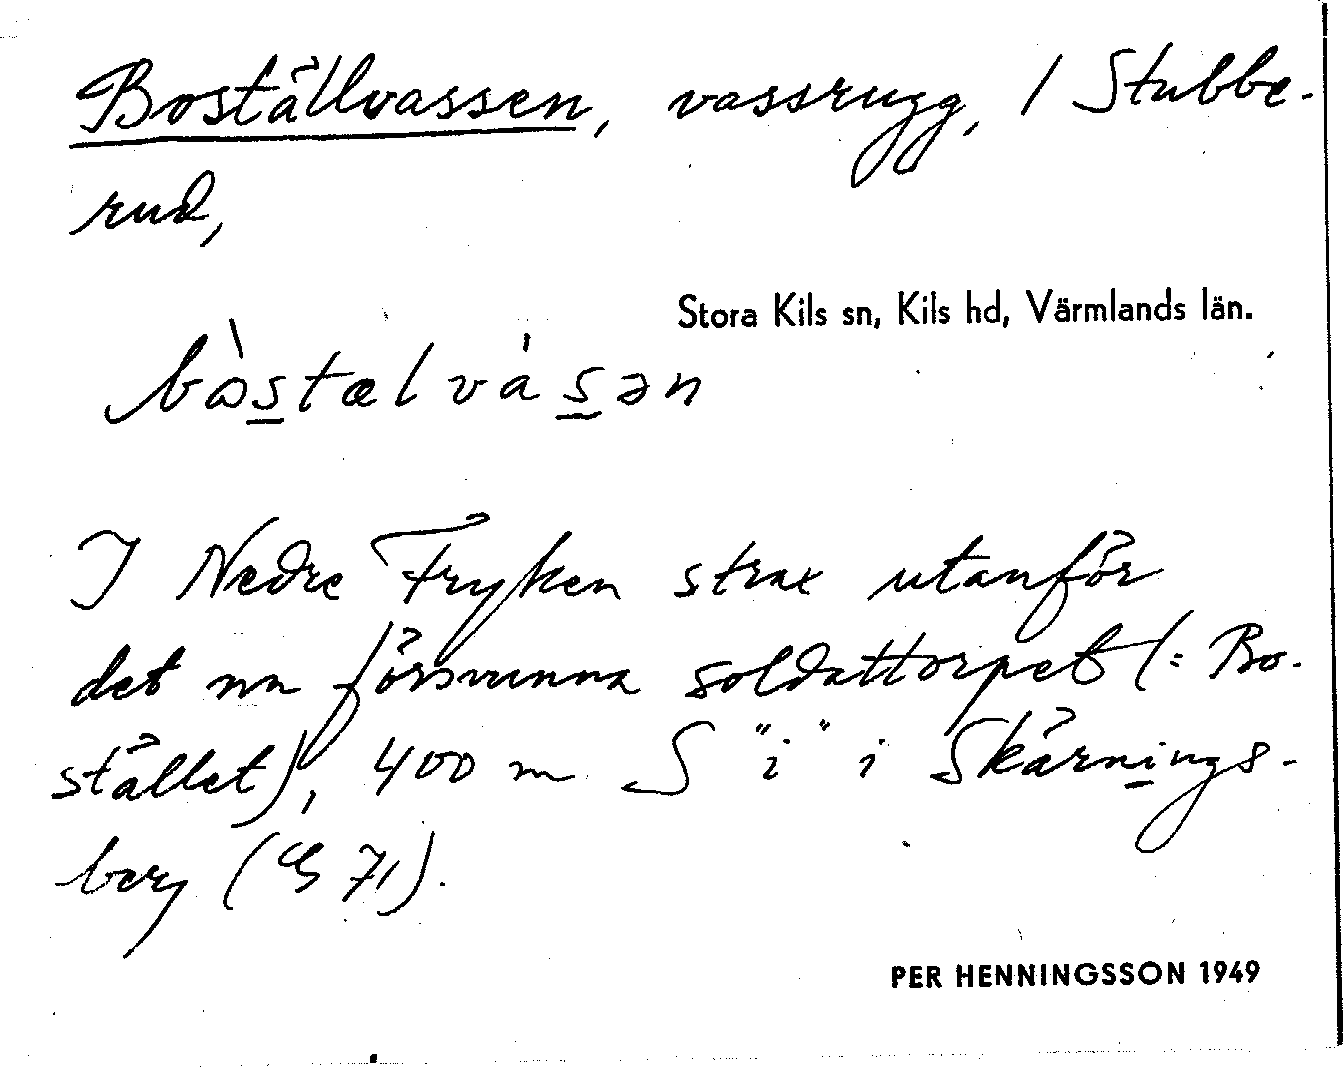 Boställvassen, vassrugg, / Stubbe-
rud,
Stora Kils sn, Kils hd, Värmlands län.
bòstælvásən
I Nedre Fryken strax utanför
det nu försvunna soldattorpet (: Bo-
stället), 400 m S "i" i Skärnings-
berg (G 71).
PER HENNINGSSON 1949